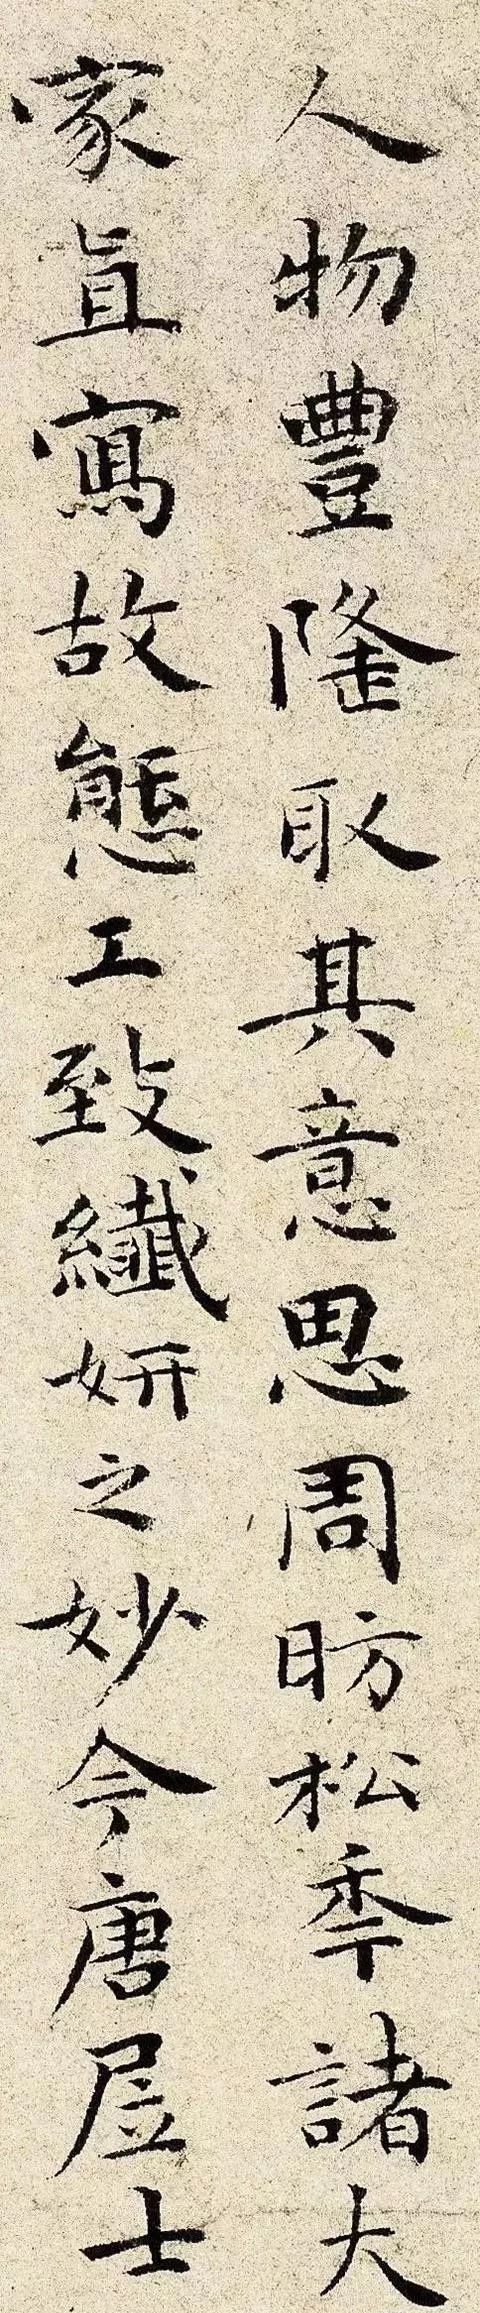 人物豐隆取其意思周昉松年諸大
家真寫故態工致纖妍之妙今唐居士